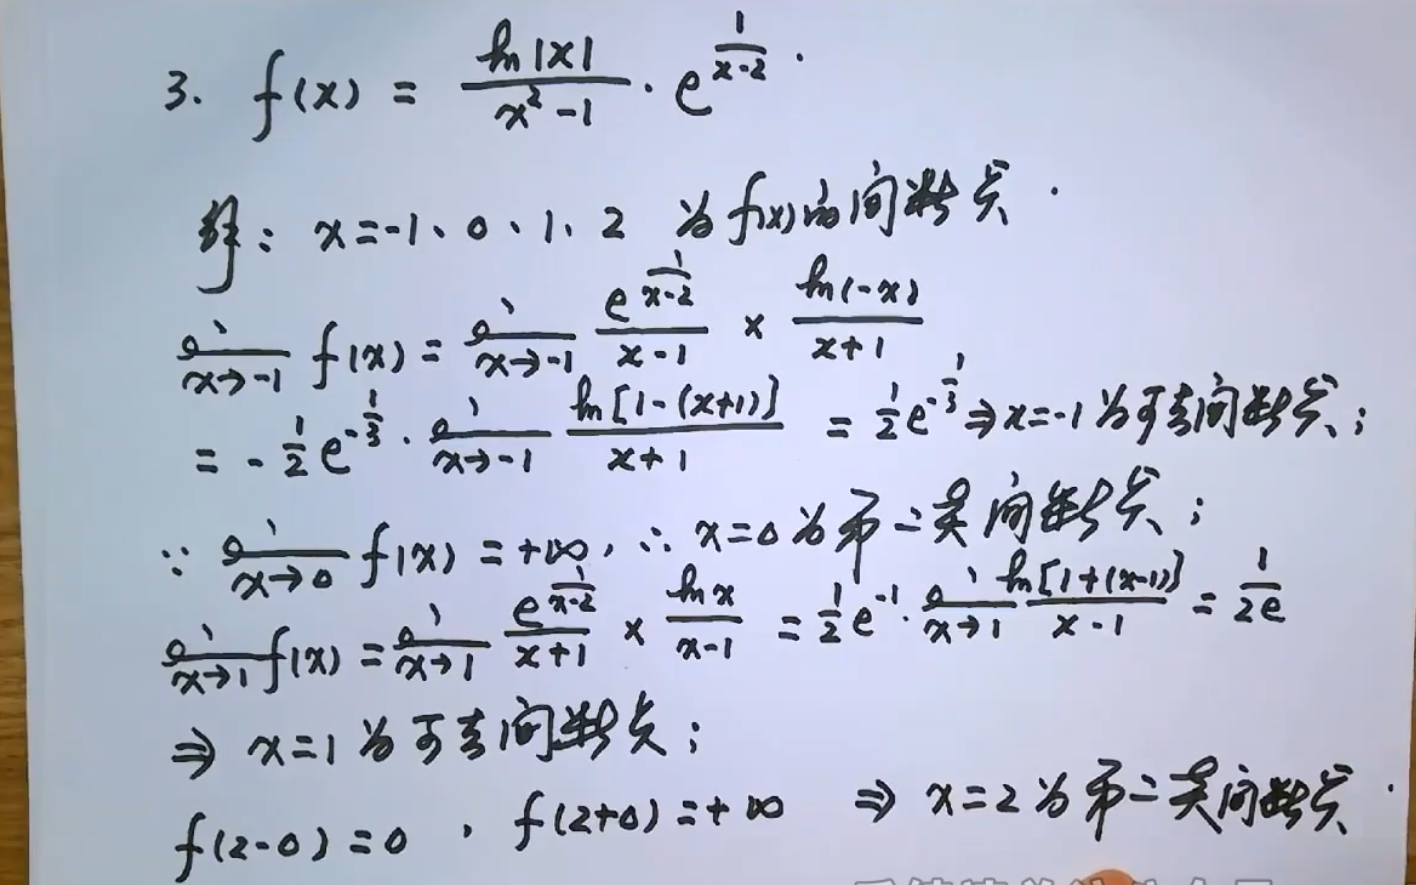 3. f(x) = ln|x|/(x²-1) · e^(1/(x-2)).
解: x=-1、0、1、2 为f(x)的间断点.
lim_{x→-1} f(x) = lim_{x→-1} e^(1/(x-2))/(x-1) × ln(-x)/(x+1)
= -1/2 e^(-1/3) · lim_{x→-1} ln[1-(x+1)]/(x+1) = 1/2 e^(-1/3) ⇒ x=-1为可去间断点;
∵ lim_{x→0} f(x) = +∞, ∴ x=0为第二类间断点;
lim_{x→1} f(x) = lim_{x→1} e^(1/(x-2))/(x+1) × ln x/(x-1) = 1/2 e^(-1) · lim_{x→1} ln[1+(x-1)]/(x-1) = 1/(2e)
⇒ x=1为可去间断点;
f(2-0)=0, f(2+0)=+∞ ⇒ x=2为第二类间断点.